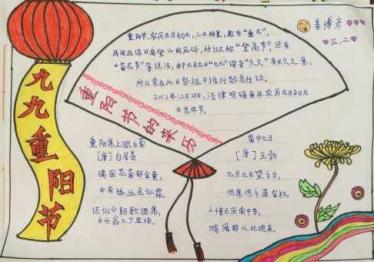 九九重阳节
重阳节的来历
重阳节,农历九月初九,二九相重,称为"重九"。
又称"登高节"还有
2012年12月28日,法律明确每年农历九月初九
为老年节。
三.二
重阳席上赋白菊
[唐]白居易
满园花菊郁金黄,
中有孤丛色似霜。
还似今朝歌酒席,
白头翁入少年场。
蜀中九日
[唐]王勃
九月九日望乡台,
他席他乡送客杯。
人情已厌南中苦,
鸿雁那从北地来。